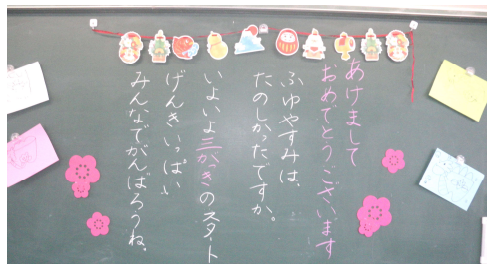 あけまして
おめでとうございます
ふゆやすみは、
たのしかったですか。
いよいよ三がっきのスタート
げんきいっぱい
みんなでがんばろうね。